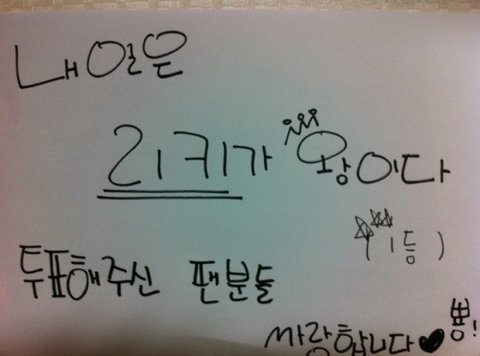 내일은
리키가 왕이다
(1등)
투표해주신 팬분들
싸랑합니다♥뿅!